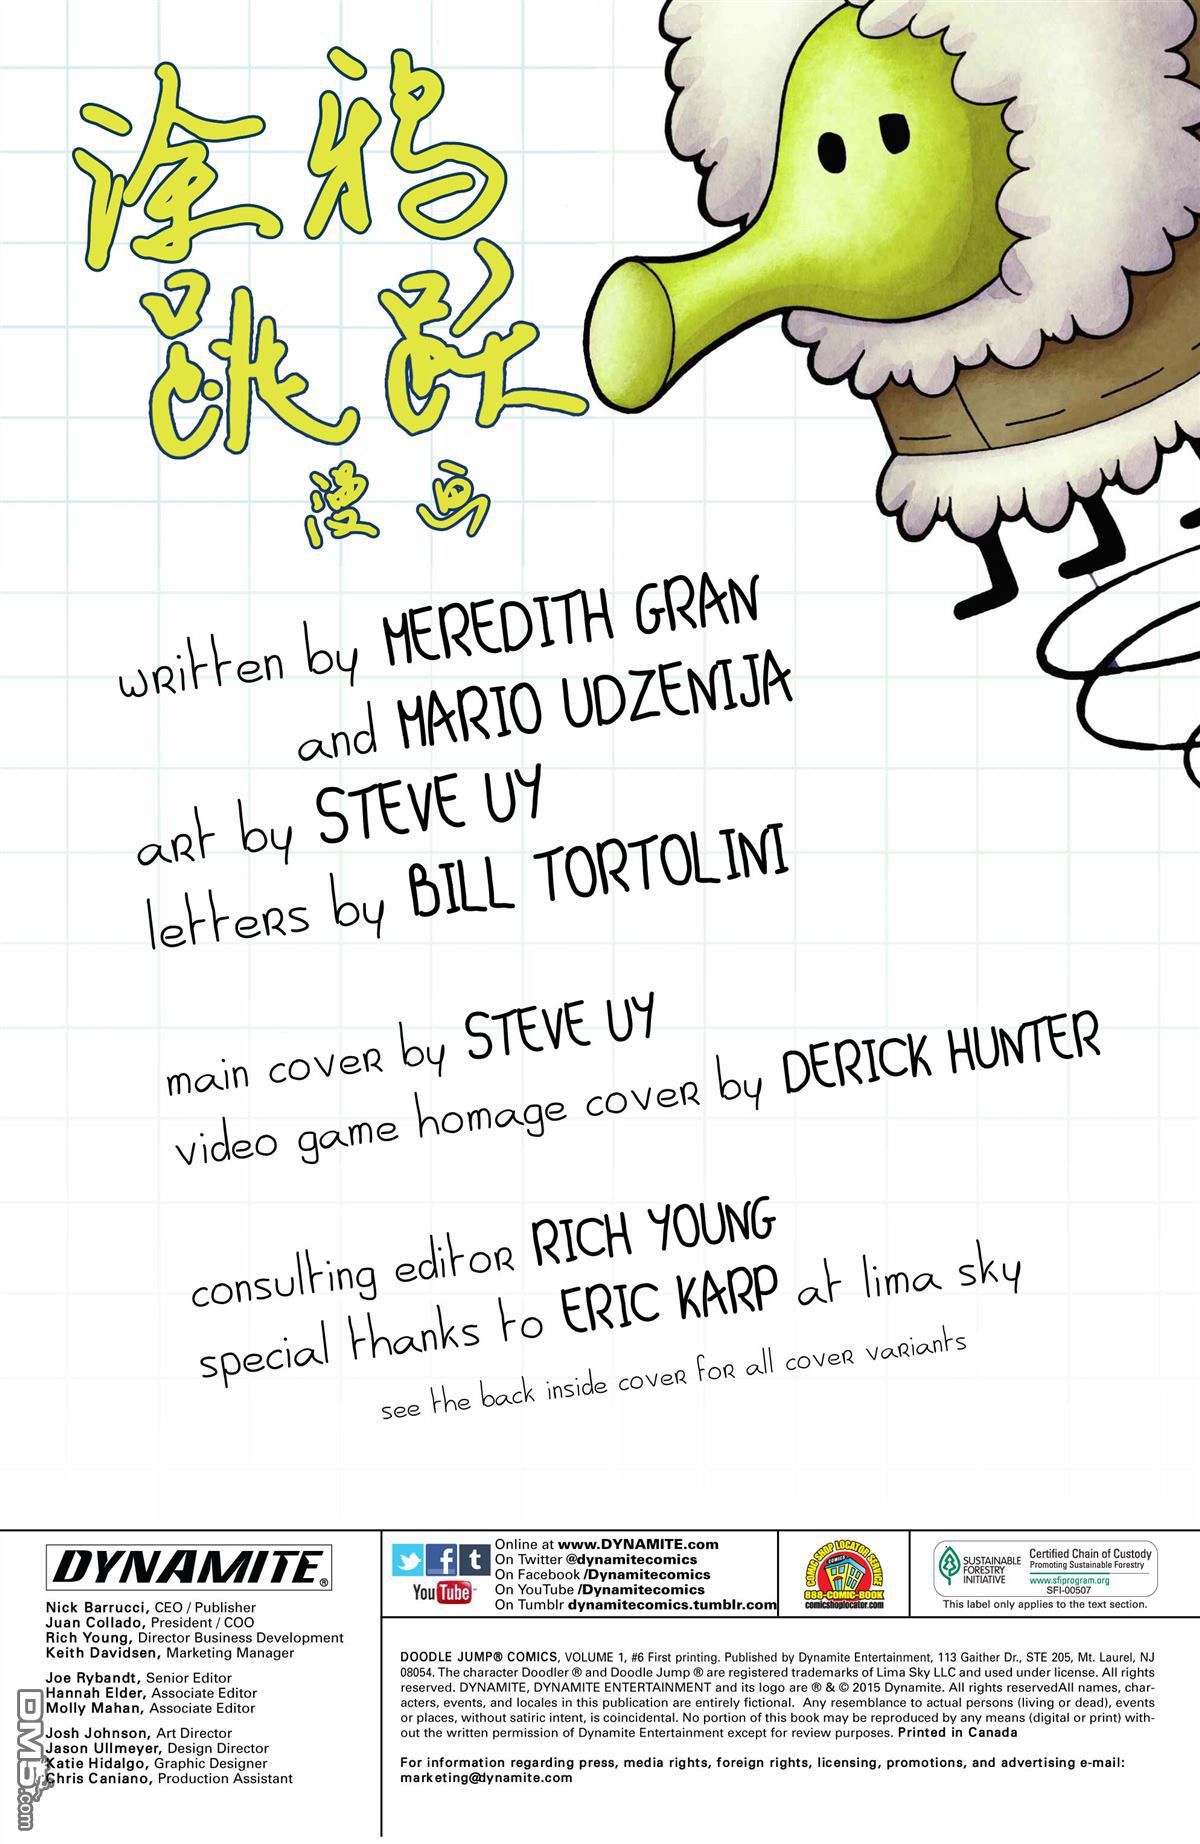 涂鸦
跳跃
漫画
written by MEREDITH GRAN
and MARIO UDZENIJA
art by STEVE UY
letters by BILL TORTOLINI
main cover by STEVE UY
video game homage cover by DERICK HUNTER
consulting editor RICH YOUNG
special thanks to ERIC KARP at lima sky
see the back inside cover for all cover variants
DYNAMITE®
Nick Barrucci, CEO / Publisher
Juan Collado, President / COO
Rich Young, Director Business Development
Keith Davidsen, Marketing Manager
Joe Rybandt, Senior Editor
Hannah Elder, Associate Editor
Molly Mahan, Associate Editor
Josh Johnson, Art Director
Jason Ullmeyer, Design Director
Katie Hidalgo, Graphic Designer
Chris Caniano, Production Assistant
DM5.com
Online at www.DYNAMITE.com
On Twitter @dynamitecomics
On Facebook /Dynamitecomics
On YouTube /Dynamitecomics
On Tumblr dynamitecomics.tumblr.com
You Tube
COMIC SHOP LOCATOR SERVICE
COMICS
888-COMIC-BOOK
comicshoplocator.com
SUSTAINABLE
FORESTRY
INITIATIVE
Certified Chain of Custody
Promoting Sustainable Forestry
www.sfiprogram.org
SFI-00507
This label only applies to the text section.
DOODLE JUMP® COMICS, VOLUME 1, #6 First printing. Published by Dynamite Entertainment, 113 Gaither Dr., STE 205, Mt. Laurel, NJ
08054. The character Doodler ® and Doodle Jump ® are registered trademarks of Lima Sky LLC and used under license. All rights
reserved. DYNAMITE, DYNAMITE ENTERTAINMENT and its logo are ® & © 2015 Dynamite. All rights reservedAll names, char-
acters, events, and locales in this publication are entirely fictional. Any resemblance to actual persons (living or dead), events
or places, without satiric intent, is coincidental. No portion of this book may be reproduced by any means (digital or print) with-
out the written permission of Dynamite Entertainment except for review purposes. Printed in Canada
For information regarding press, media rights, foreign rights, licensing, promotions, and advertising e-mail:
marketing@dynamite.com